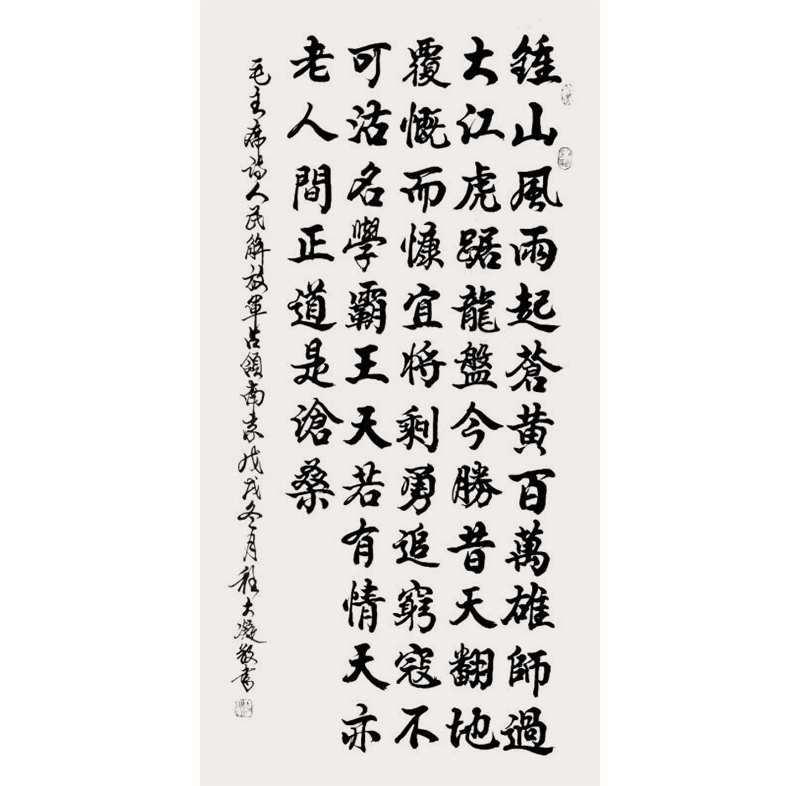 鍾山風雨起蒼黃百萬雄師過
大江虎踞龍盤今勝昔天翻地
覆慨而慷宜將剩勇追窮寇不
可沽名學霸王天若有情天亦
老人間正道是滄桑
毛主席詩人民解放軍占領南京戊戌冬月程大凝敬書